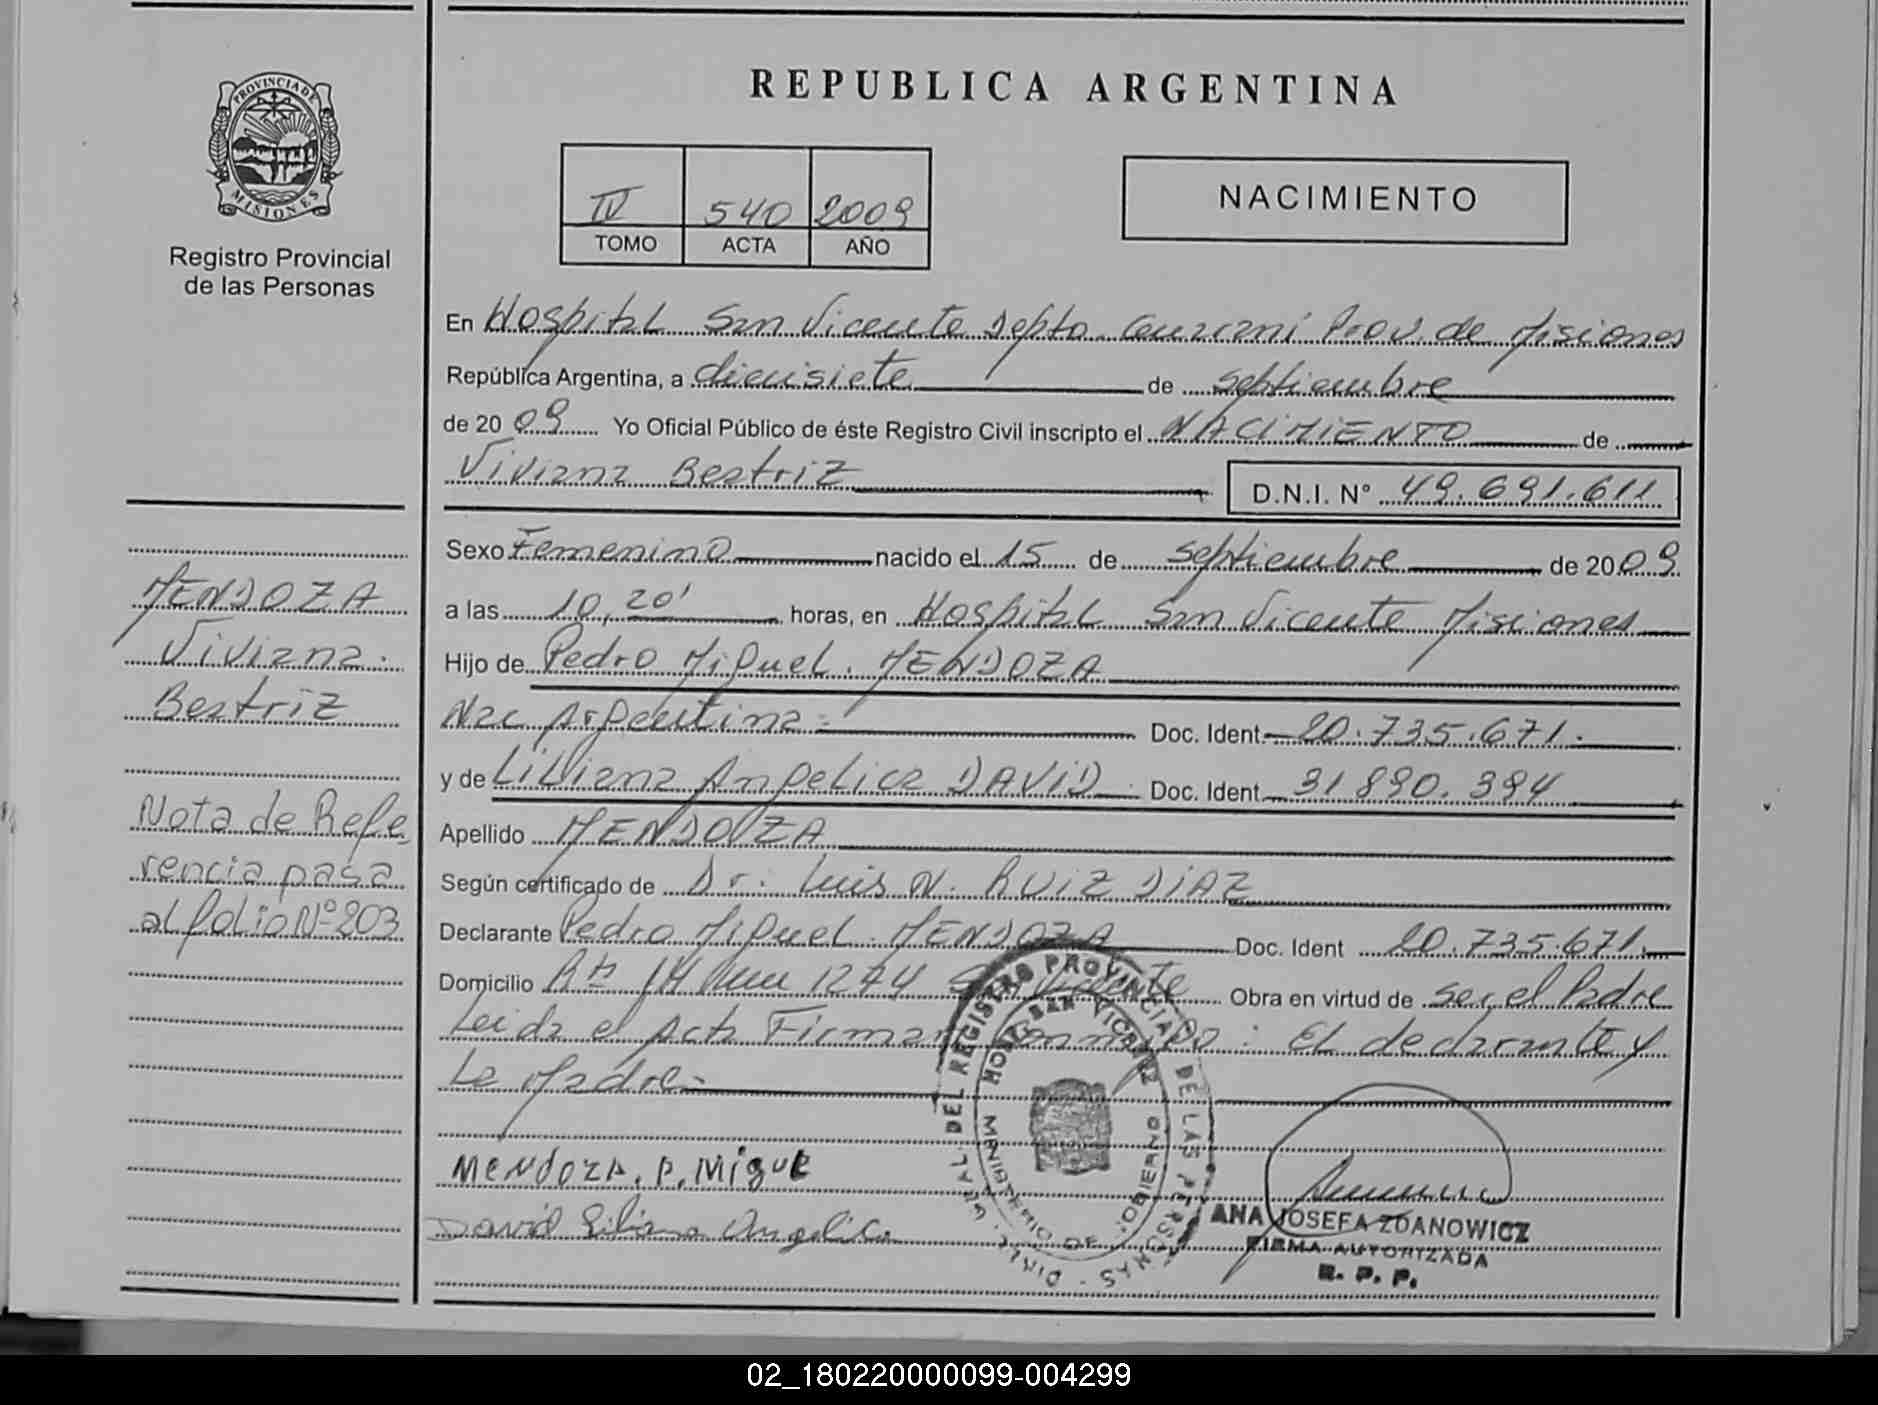 PROVINCIA DE
MISIONES
Registro Provincial
de las Personas
REPUBLICA ARGENTINA
IV 540 2009
TOMO ACTA AÑO
NACIMIENTO
En Hospital San Vicente Depto. Guaraní Prov. de Misiones
República Argentina, a diecisiete de septiembre
de 2009 Yo Oficial Público de éste Registro Civil inscripto el NACIMIENTO de
Viviana Beatriz D.N.I. N° 49.691.611
Sexo Femenino nacido el 15 de septiembre de 2009
a las 10,20' horas, en Hospital San Vicente Misiones
Hijo de Pedro Miguel. MENDOZA
Nac Argentina= Doc. Ident. 20.735.671.
y de Liliana Angelica DAVID Doc. Ident. 31890.394
Apellido MENDOZA
Según certificado de Dr. Luis N. RUIZ DIAZ
Declarante Pedro Miguel. MENDOZA Doc. Ident 20.735.671.
Domicilio 14 1274 Vicente Obra en virtud de ser el Padre
Leida el Acta Firman : El declarante y
La Madre-
MENDOZA. P. Migue
David Liliana Angelica
MENDOZA
Viviana.
Beatriz
Nota de Refe
rencia pasa
al folio Nº 203
DEL REGISTRO PROVINCIAL DE LAS PERSONAS
HOSP. SAN VICENTE
MINISTERIO DE GOBIERNO
ANA JOSEFA ZDANOWICZ
FIRMA AUTORIZADA
R. P. P.
02_180220000099-004299